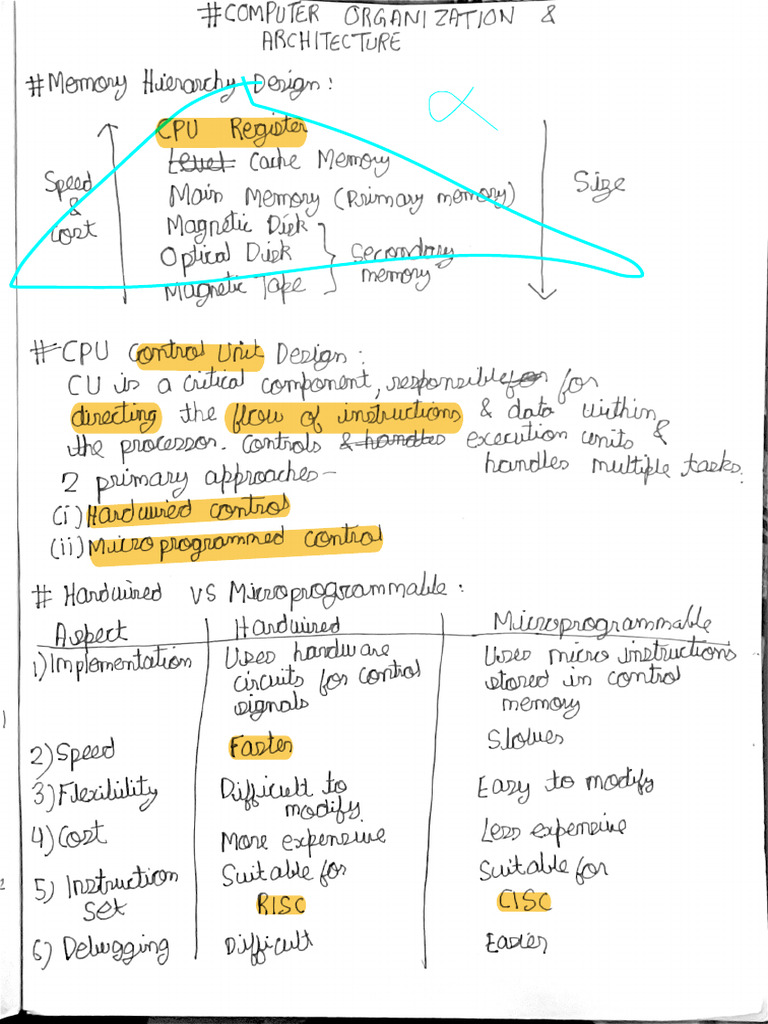 #COMPUTER ORGANIZATION &
ARCHITECTURE
#Memory Hierarchy Design:
α
CPU Register
Level Cache Memory
Speed
&
Cost
Main Memory (Primary memory)
Size
Magnetic Disk
Optical Disk
Secondary
memory
Magnetic Tape
#CPU Control Unit Design:
CU is a critical component, responsible for for
directing the flow of instructions & data within
the processor. Controls & handles execution units &
handles multiple tasks.
2 primary approaches-
(i) Hardwired control
(ii) Microprogrammed control
# Hardwired vs Microprogrammable:
Aspect Hardwired Microprogrammable
1) Implementation Uses hardware Uses micro instructions
circuits for control stored in control
signals memory
2) Speed Faster Slower
3) Flexibility Difficult to Easy to modify
modify.
4) Cost More expensive Less expensive
5) Instruction Suitable for Suitable for
Set RISC CISC
6) Debugging Difficult Easier